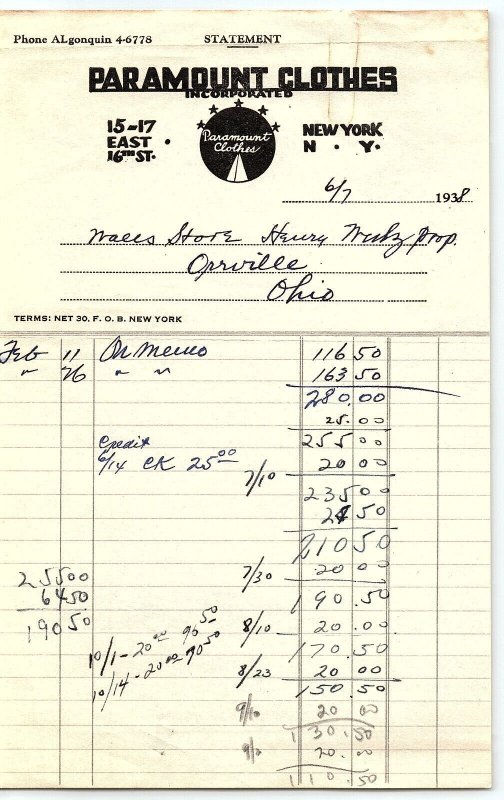 Phone ALgonquin 4-6778 STATEMENT
PARAMOUNT CLOTHES
INCORPORATED
15-17
EAST
16TH ST.
Paramount
Clothes
NEW YORK
N. Y.
6/7 1938
Store Henry Prop.
Orrville
Ohio
TERMS: NET 30. F. O. B. NEW YORK
Feb 11 On memo 116 50
" 26 " " 163 50
280.00
25.00
255 00
Credit
6/14 CK 25 00
7/10 20 00
235 00
24 50
210 50
7/30 20 00
190.50
255 00
64 50
190 50
8/10 20.00
170.50
10/1 - 20 00 90 50
10/14 - 20 00 70 50
8/23 20 00
150.50
9/10 20 00
130.50
20.00
110.50